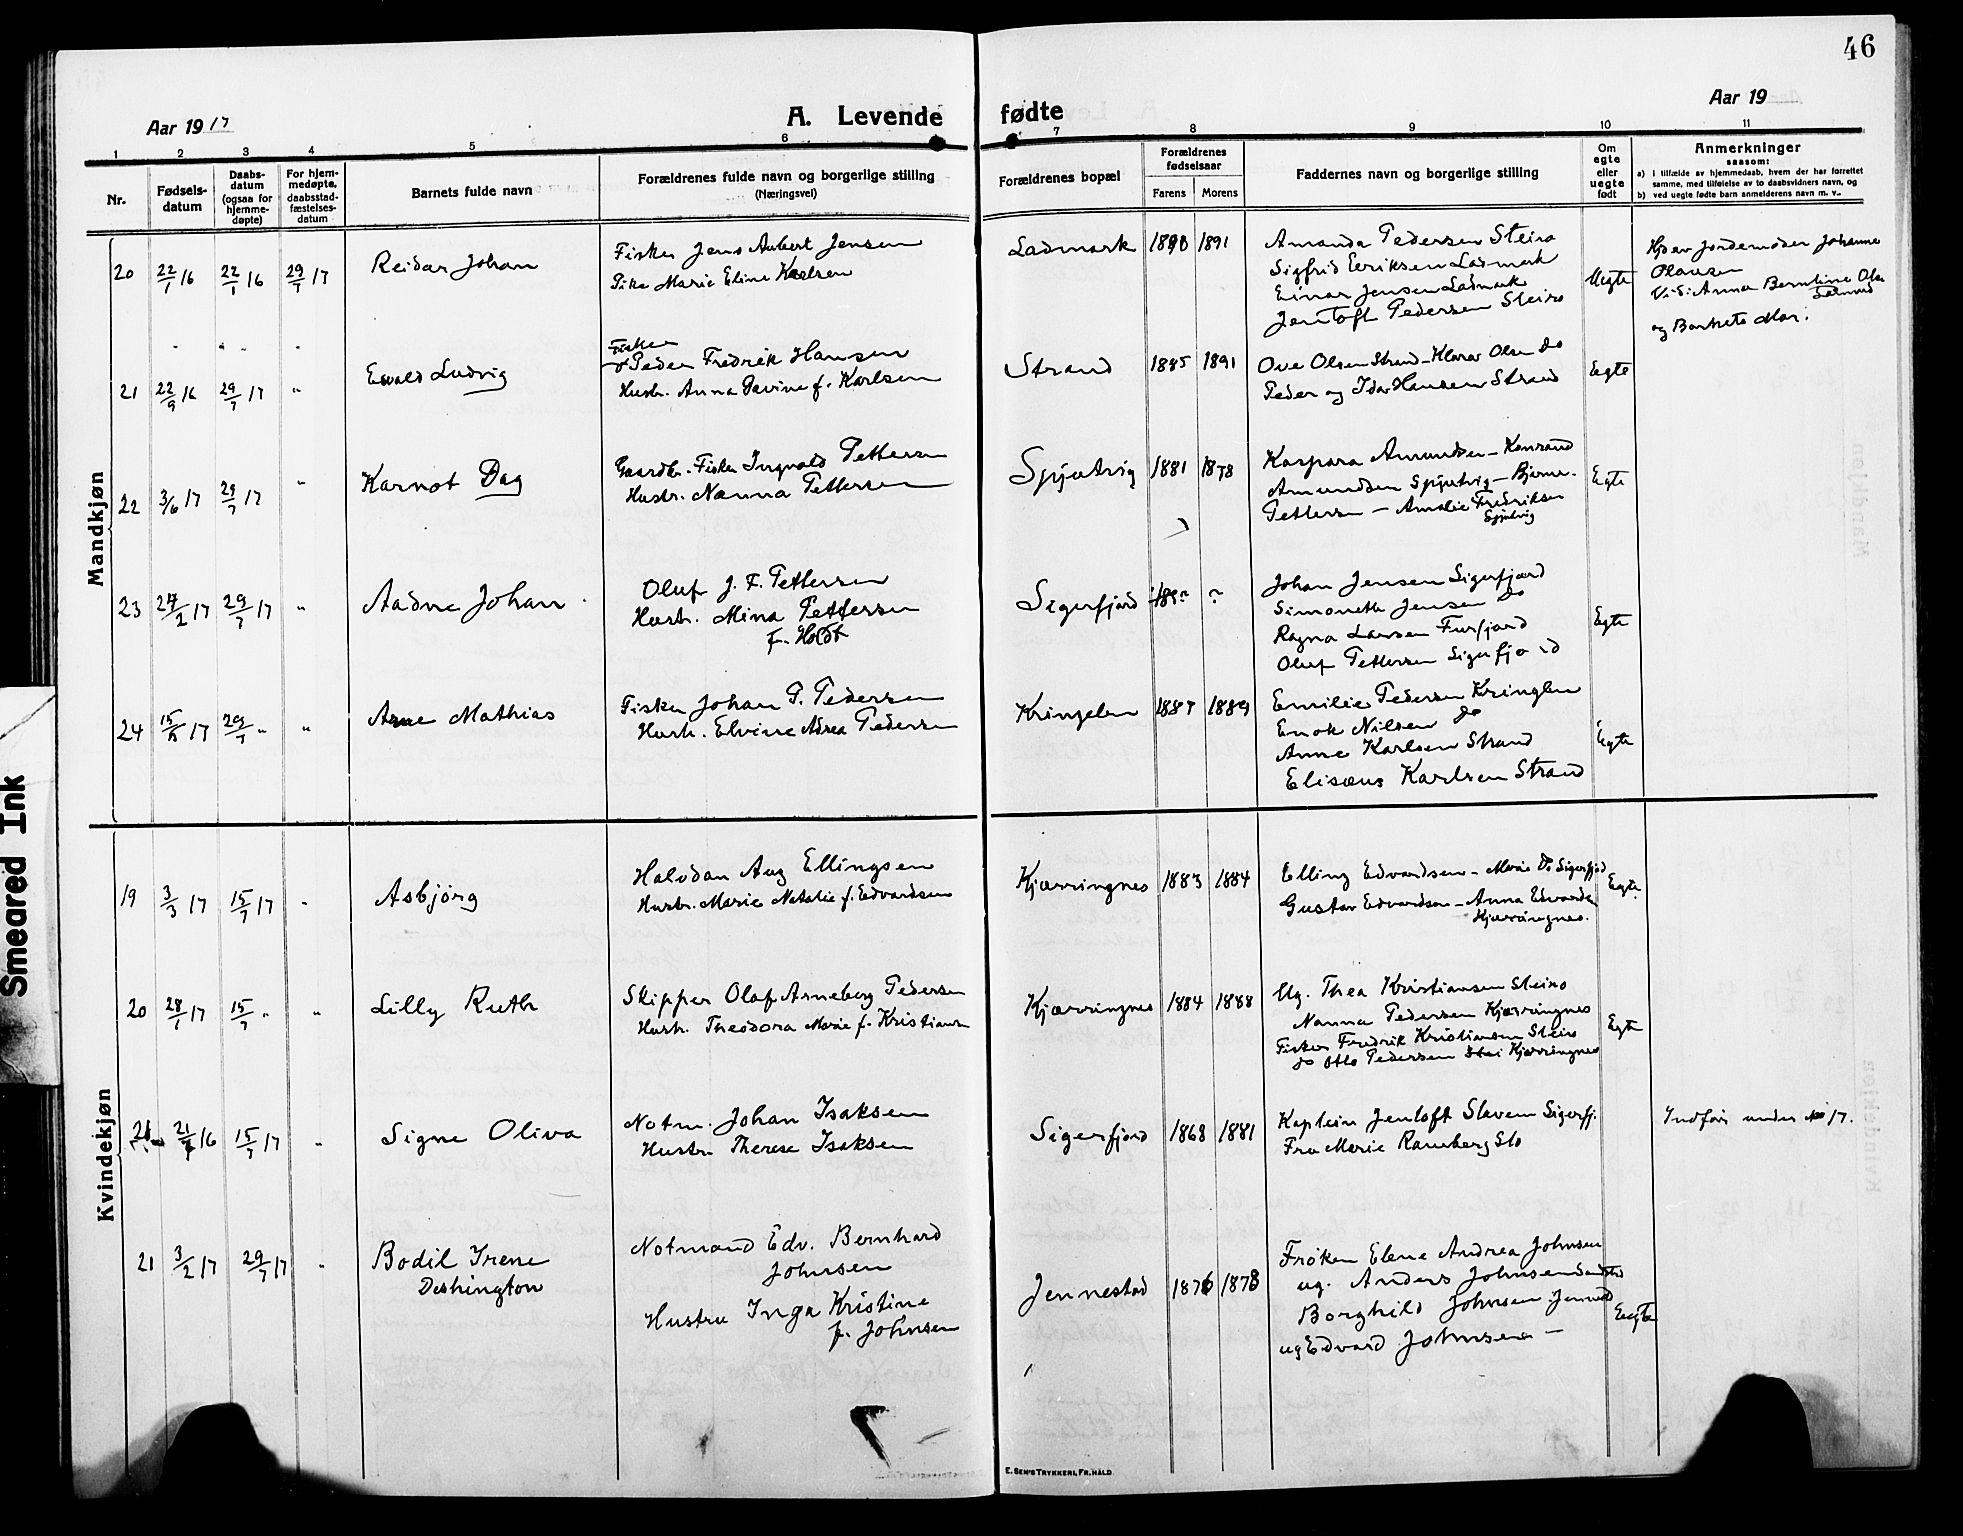 46
Aar 1917
A. Levende fødte
Aar 19
1 2 3 4 5 6 7 8 9 10 11
Nr.
Fødsels-
datum
Daabs-
datum
(ogsaa for
hjemme-
døpte)
For hjem-
medøpte,
daabsstad-
fæstelses-
datum
Barnets fulde navn
Forældrenes fulde navn og borgerlige stilling
(Næringsvei)
Forældrenes bopæl
Forældrenes
fødselsaar
Farens Morens
Faddernes navn og borgerlige stilling
Om
egte
eller
uegte
født
Anmerkninger
saasom:
a) i tilfælde av hjemmedaab, hvem der har forrettet
samme, med tilføielse av to daabsvidners navn, og
b) ved uegte fødte barn anmelderens navn m. v..
Mandkjøn
20 22/1 16 22/1 16 29/7 17 Reidar Johan
Fisker Jens Aubert Jensen
Pike Marie Eline Karlsen
Ladmark 1890 1891
Amanda Pedersen Steiro
Sigfrid Eeriksen Ladmark
Einar Jensen Ladmark
Jentoft Pedersen Steiro
Uegte
Hjd av Jordemoder Johanne
Olausen
V. S: Anna Berntine Olsen
Ladmark
og Barnets Mor.
21 22/9 16 29/7 17 " Evald Ludvig
Fisker
Peder Fredrik Hansen
Hustr. Anna Pavine f. Karlsen
Strand 1885 1891
Ove Olsen Strand - Klara Olsen do
Peder og Ida Hansen Strand
Egte
22 3/6 17 29/7 17 " Karnot Dag
Gaardbr. Fisker Ingvald Pettersen
Hustr. Nanna Pettersen
Spjutvig 1881 1878
Kaspara Amundsen - Konrand
Amundsen Spjutvig - Bjarne
Pettersen - Amalie Fredriksen
Spjutvig
Egte
23 24/2 17 29/7 17 " Aadne Johan
Oluf J. F. Pettersen
Hustr. Mina Pettersen
f. Holdt
Sigerfjord 18?? ?
Johan Jensen Sigerfjord
Simoneth Jensen do
Ragna Larsen Furfjord
Oluf Pettersen Sigerfjord
Egte
24 15/6 17 29/7 " " Arne Mathias
Fisker Johan P. Pedersen
Hustr. Elvine Adrea Pedersen
Kringelen 1887 1889
Emilie Pedersen Kringlen
Enok Nilsen do
Anne Karlsen Strand
Eliseus Karlsen Strand
Egte
Kvindekjøn
19 3/3 17 15/7 17 " Asbjörg
Halvdan Aug Ellingsen
Hustr. Marie Natalie f. Edvardsen
Kjærringnes 1883 1884
Elling Edvardsen - Marie do Sigerfjord
Gustav Edvardsen - Anna Edvardsen
Kjærringnes.
Egte
20 28/1 17 15/7 " " Lilly Ruth
Skipper Olaf Arneberg Pedersen
Hustr. Theodora Marie f. Kristiansen
Kjærringnes 1884 1888
Ug. Thea Kristiansen Steiro
Nanna Pedersen Kjærringnes
Fisker Fredrik Kristiansen Steiro
do Otto Pedersen Kjærringnes
Egte
21 21/7 16 15/7 17 " Signe Oliva
Notm. Johan Isaksen
Hustru Therese Isaksen
Sigerfjord 1868 1881
Kaptein Jentoft Slevem Sigerfj.
Fru Marie Ramberg Slo
Indför under No 17.
21 3/2 17 29/7 17 " Bodil Irene
Deshington
Notmand Edv. Bernhard
Johnsen
Hustru Inga Kristine
f. Johnsen
Jennestad 1876 1878
Fröken Elene Andrea Johnsen
ug. Anders Johnsen Sandstad
Borghild Johnsen Jennestad
ug Edvard Johnsen -
Eegte
E. SEM'S TRYKKERI, FR.HALD.
Smeared Ink